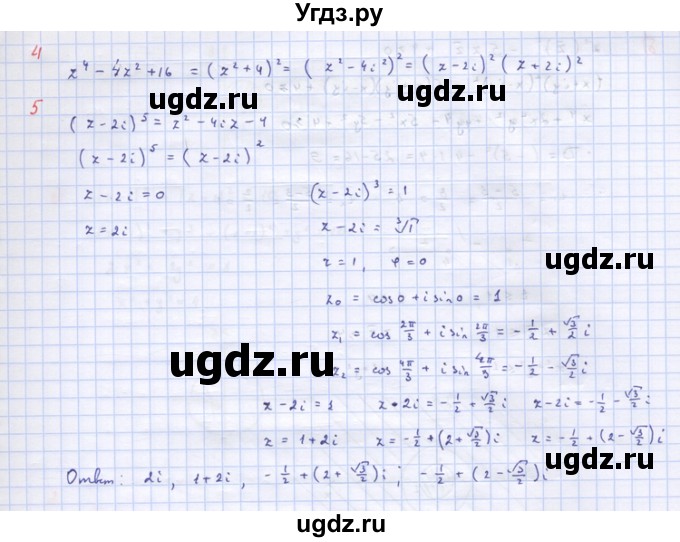 Угдз.ру
4
z⁴ − 4z² + 16 = (z² + 4)² = (z² − 4i²)² = (z − 2i)² (z + 2i)²
ugdz.ru ugdz.ru
5
(z − 2i)⁵ = z² − 4iz − 4
(z − 2i)⁵ = (z − 2i)²
z − 2i = 0 (z − 2i)³ = 1
z = 2i z − 2i = ∛1
r = 1, φ = 0
ugdz.ru
z₀ = cos0 + i sin0 = 1
z₁ = cos 2π/3 + i sin 2π/3 = −1/2 + √3/2 i
ugdz.ru ugdz.ru
z₂ = cos 4π/3 + i sin 4π/3 = −1/2 − √3/2 i
z − 2i = 1 z − 2i = −1/2 + √3/2 i z − 2i = −1/2 − √3/2 i
z = 1 + 2i z = −1/2 + (2 + √3/2)i z = −1/2 + (2 − √3/2)i
ugdz.ru
Ответ: 2i, 1+2i, −1/2 + (2 + √3/2)i; −1/2 + (2 − √3/2)i
ugdz.ru
ugdz.ru